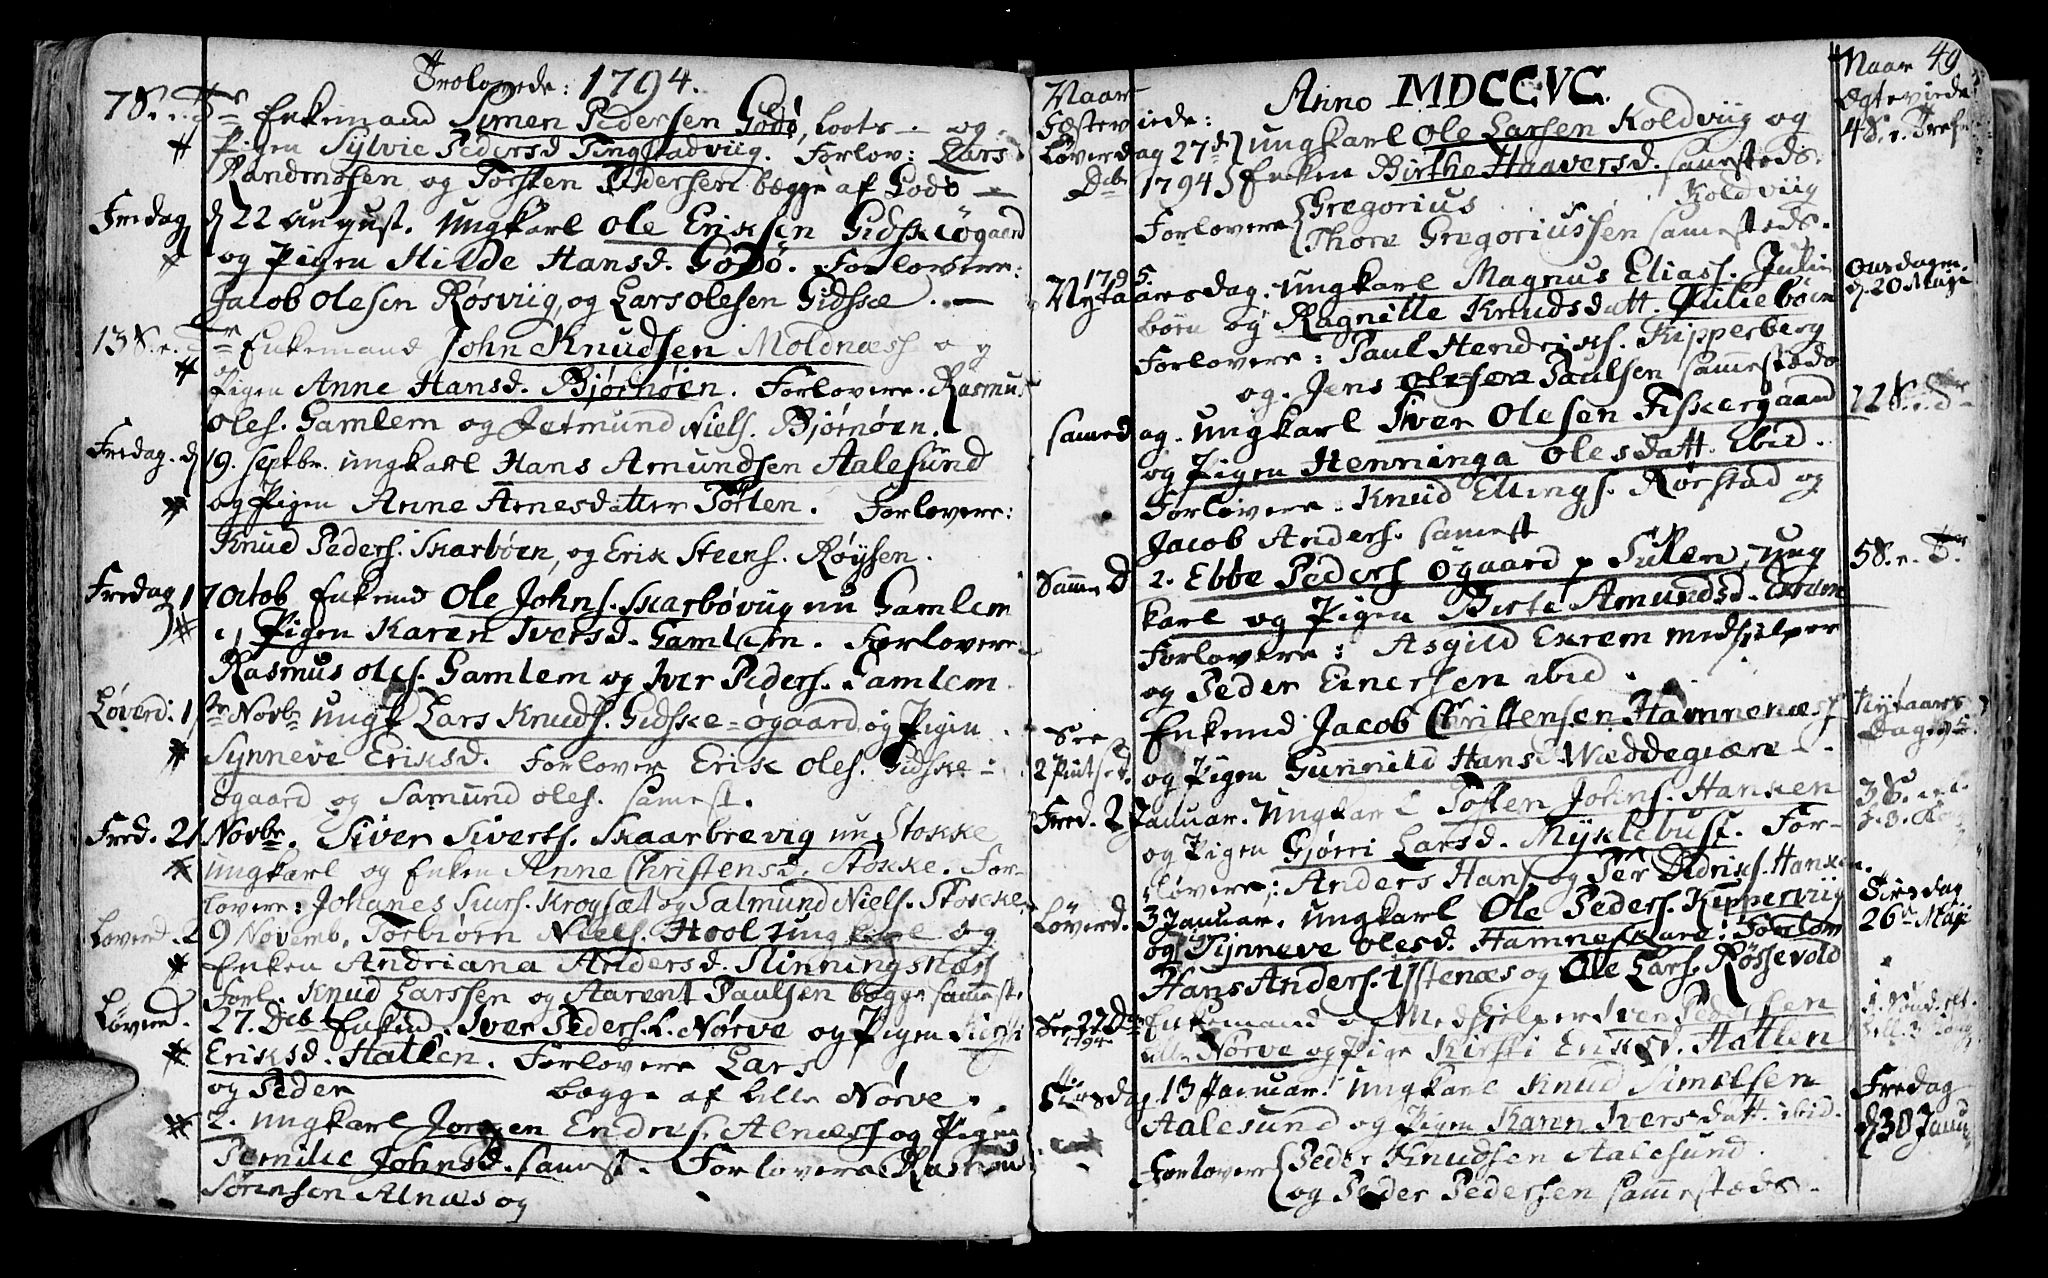 Trolovede: 1794.
7 S. e. Tr Enkemand Simen Pedersen Godø, Loots — og
Pigen Sylvie Pedersd Tingstadviig. Forlov: Lars
Randmosen og Torsten Pedersen begge af Godø —
Fredag d 22 August. Ungkarl Ole Eriksen Gidskeøgaard
og Pigen Hilde Hansd. Godø. Forlovere:
Jacob Olesen Røsviig, og Lars Olesen Gidske. —
13 S. e. Tr Enkemand John Knudsen Moldnæss og
Pigen Anne Hansd. Bjørnøen. Forlovere. Rasmus
Oles. Gamlem og Jetmund Niels. Bjørnøen.
Fredag. d 19. Septbr. ungkarl Hans Amundsen Aalesund
og Pigen Anne Arnesdatter Toften. Forlovere:
Knud Peders. Skarbøen, og Erik Steens. Røysen.
Fredag 17 Octob Enkemd Ole Johns. Skarbøviig nu Gamlem
og Pigen Karen Iversd. Gamlem. Forlovere
Rasmus Oles. Gamlem og Iver Peders. Gamlem
Løverd: 1ste Novbr Ungk Lars Knuds. Gidske-øgaard og Pigen
Synneve Eriksd. Forlover Erik Oles. Gidske-
øgaard og Samund Oles. samest.
Fred. 21 Novbr. Siver Siverts. Skaarbrevig nu Stokke
ungkarl og Enken Anne Christensd. Stokke. For-
lovere: Johanes Siurs. Krogsæt og Salmund Niels. Stokke
Løverd. 29 Novemb. Torbiørn Niels. Hool ungkarl og
Enken Andriana Andersd. Slinningsnæss
Forl. Knud Larssen og Aarent Paulsen begge samest.
Løverd. 27. Decb Enkmd. Iver Peders. L. Nørve og Pigen Kirsti
Eriksd. Hatlen. Forlovere Lars
og Peder begge af lille Nørve.
2. Ungkarl Jørgen Endres. Alnæss og Pigen
Pernilie Johnsd. samest. Forlovere Rasmus
Sørensen Alnæs og
49
Naar
Fæsteviede:
Anno MDCCVC.
Naar
Ægteviede
Løverdag 27d Ungkarl Ole Larsen Koldviig og
4 S. e. Trefn
Dcbr 1794 Enken Birthe Haaversd. samesteds.
Forlovere Gregorius Koldviig
Thore Gregoriussen samesteds.
1795.
Nytaarsdag. Ungkarl Magnus Eliass. Julie
Onsdagen d. 20 Maji
bøen og Ragnille Knudsdatt. Juliebøen
Forlovere: Paul Hendriks. Kipperberg
og. Jens Olesen Paulsen sammesteds
samedag. Ungkarl Iver Olesen Fiskergaard
og Pigen Henninga Olesdatt. Ibid.
Forlovere. Knud Ellings. Rørstad og
Jacob Anders. samest
Samme D 2. Ebbe Peders Øgaard p Sulen, Ung
5 S. e. Tr
karl og Pigen Berte Amundsd. Exrem
Forlovere: Asgild Exrem medhjelper
og Peder Einersen ibid.
See
2 Pintsed.
Enkemd Jacob Christensen Hamnenæss
Nytaars
Dag 95.
og Pigen Gunnild Hansd. Wæddegiære
Fred. 2 Januar. Ungkarl Tosten Johns. Hanken
og Pigen Gjørri Larsd. Myklebust. For-
lovere: Anders Hans. og Per Didriks. Hanken.
Løverd. 3 Januar. Ungkarl Ole Peders. Kipperviig
Tirsdag
26de Maji
og Synneve Olesd. Hamneskard: Forlov
Hans Anders. Ystenæs og Ole Lars. Røssevold
See 27 Dbr
1794
Enkemand og Medhjelper Iver Pedersen
lille Nørve og Pige Kirsti Eriksd. Hatlen
Tirsdag 13 Januar. Ungkarl Knud Simelsen
Fredag
d 30 Janu
Aalesund og Pigen Karen Iversdatt. ibid.
Forlovere Peder Knudsen Aalesund
og Peder Pedersen sammesteds.